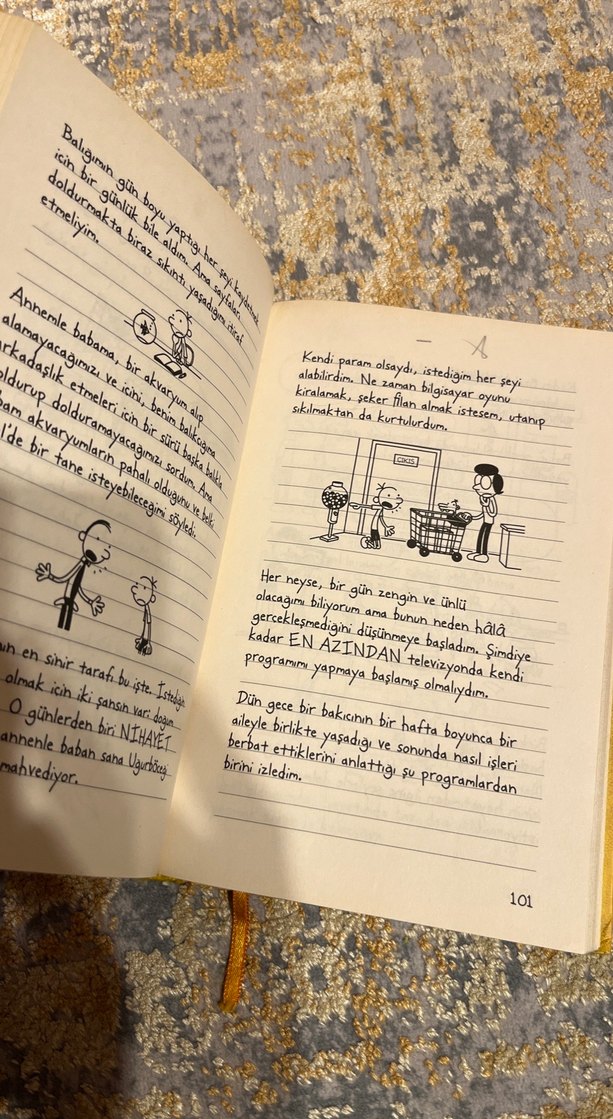 Balığımın gün boyu yaptığı her şeyi kaydetmek
için bir günlük bile aldım. Ama sayfaları
doldurmakta biraz sıkıntı yaşadığımı itiraf
etmeliyim.
Annemle babama, bir akvaryum alıp
alamayacağımızı ve içini, benim balığıma
arkadaşlık etmeleri için bir sürü başka balıkla
doldurup dolduramayacağımızı sordum. Ama
akvaryumların pahalı olduğunu ve belki
bir tane isteyebileceğimi söyledi.
en sinir tarafı bu işte. İstediğin
olmak için iki şansın var: doğum
O günlerden biri NİHAYET
annenle baban sana Uğurböceği
mahvediyor.
Kendi param olsaydı, istediğim her şeyi
alabilirdim. Ne zaman bilgisayar oyunu
kiralamak, şeker filan almak istesem, utanıp
sıkılmaktan da kurtulurdum.
ÇIKIŞ
Her neyse, bir gün zengin ve ünlü
olacağımı biliyorum ama bunun neden hâlâ
gerçekleşmediğini düşünmeye başladım. Şimdiye
kadar EN AZINDAN televizyonda kendi
programımı yapmaya başlamış olmalıydım.
Dün gece bir bakıcının bir hafta boyunca bir
aileyle birlikte yaşadığı ve sonunda nasıl işleri
berbat ettiklerini anlattığı şu programlardan
birini izledim.
101